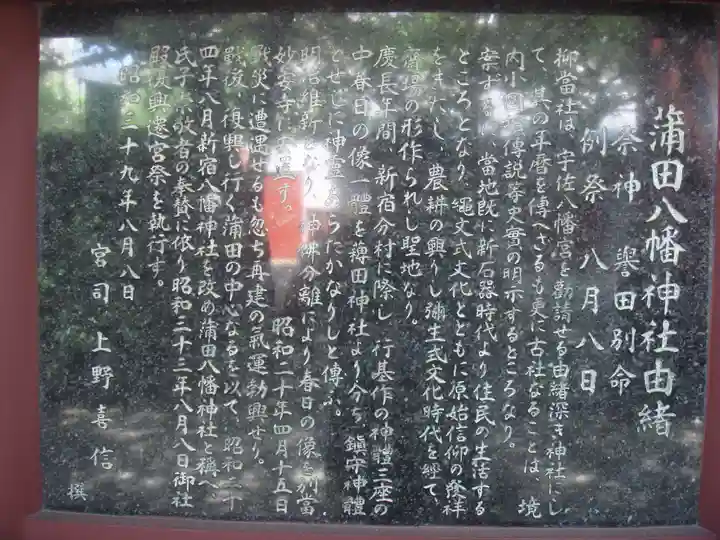 蒲田八幡神社由緒
祭神　譽田別命
例祭　八月八日
抑當社は、宇佐八幡宮を勸請せる由緒深き神社にし
て、其の年曆を傳へざるも更に古社なることは、境
内小圓墳傳說等史實の明示するところなり。
案ずるに、當地既に新石器時代より住民の生活する
ところとなり、繩文式文化とともに原始信仰の發祥
をきたし、農耕の興りし彌生式文化時代を經て、
の形作られし聖地なり。
慶長年間、新宿分村に際し、行基作の神體三座の
中春日の像一體を薭田神社より分ち、鎭守神體
とせしに神靈あらたかなりしと傳ふ。
明治維新となり、神佛分離により春日の像を別當
妙安寺に安置す。　昭和二十年四月十五日
戰災に遭遇せるも忽ち再建の氣運勃興せり。
戰後、復興し行く蒲田の中心なるを以て、昭和二十
四年八月新宿八幡神社を改め蒲田八幡神社と稱へ、
氏子崇敬者の奉賛に依り昭和三十三年八月八日御社
殿復興遷宮祭を執行す。
昭和三十九年八月八日
宮司　上野喜信　撰